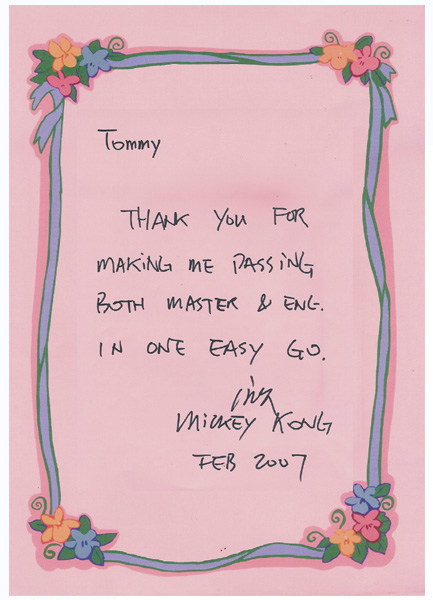 Tommy
THANK YOU FOR
MAKING ME PASSING
BOTH MASTER & ENG.
IN ONE EASY GO.
MICKEY KONG
FEB 2007